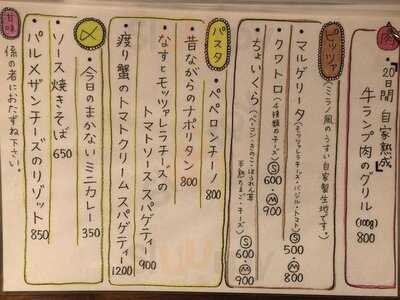 肉
・20日間 自家熟成
牛ランプ肉のグリル
(100g) 800
ピッツァ
(ミラノ風のうすい自家製生地です。)
・マルゲリータ(モッツァレラチーズ・バジル・トマト) Ⓢ500 Ⓜ800
・クワトロ(4種類のチーズ) Ⓢ600 Ⓜ900
・ちょいくら(ベーコン・きのこ・ほうれん草
半熟たまご・チーズ) Ⓢ600 Ⓜ900
パスタ
・ペペロンチーノ 800
・昔ながらのナポリタン 800
・なすとモッツァレラチーズの
トマトソーススパゲティー 900
・渡り蟹のトマトクリームスパゲティー 1200
〆
・今日のまかないミニカレー 350
・ソース焼きそば 650
・パルメザンチーズのリゾット 850
甘味
係の者におたずね下さい。